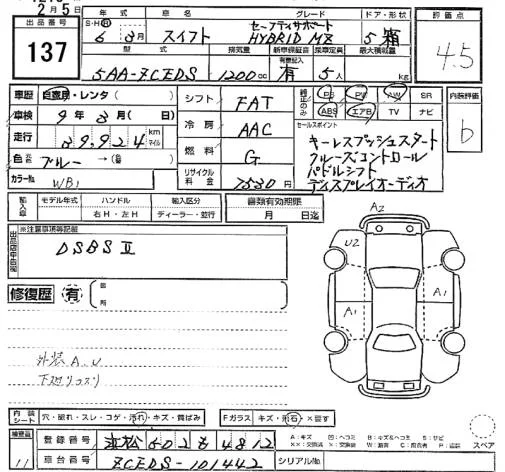 2月5日
出品番号
137
年式
S・H・R
6年3月
車名
スイフト
グレード
セーフティサポート
HYBRID MZ
ドア・形状
5
評価点
4.5
型式
5AA-ZCEDS
排気量
1200cc
新車保証書
有
乗車定員
5人
最大積載量
kg
車歴
自家用・レンタ( )
車検
9年3月( 日)
走行
39,924
km
マイル
色
ブルー→(色 )
カラーNo
WB1
シフト
FAT
冷房
AAC
燃料
G
リサイクル料金
7530円
PS PW AW SR
ABS エアB TV ナビ
セールスポイント
キーレスプッシュスタート
クルーズコントロール
パドルシフト
ディスプレイオーディオ
内装評価
b
輸入車
モデル年式
ハンドル
右H・左H
輸入区分
ディーラー・並行
書類有効期限
月 日迄
※注意事項等記載
DSBS II
修復歴
有
箇所
外装A.U
下廻りコスリ
A2
U2
A1
A1
内装
シート
穴・破れ・スレ・コゲ・汚れ・キズ・黄ばみ
Fガラス
キズ・飛石・×要す
スペア
登録番号
浜松 502 も 4812
車台番号
ZCEDS-101442
シリアルNo.
11